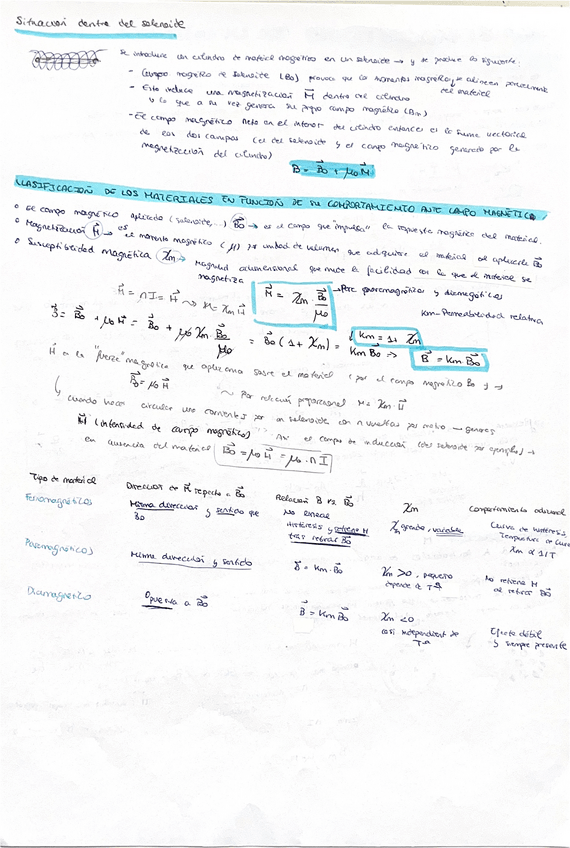 Situación dentro del solenoide
Se introduce un cilindro de material magnético en un solenoide → y se produce lo siguiente:
- Campo magnético de solenoide (B₀) provoca que los momentos magnéticos se alineen parcialmente
del material
- Esto induce una magnetización M⃗ dentro del cilindro
y lo que a su vez genera su propio campo magnético (Bm)
- El campo magnético neto en el interior del cilindro entonces es la suma vectorial
de los dos campos (el del solenoide y el campo magnético generado por la
magnetización del cilindro)
B⃗ = B⃗₀ + μ₀M⃗
CLASIFICACIÓN DE LOS MATERIALES EN FUNCIÓN DE SU COMPORTAMIENTO ANTE CAMPO MAGNÉTICO
• El campo magnético aplicado (solenoide...) B⃗₀ → es el campo que "impulsa" la respuesta magnética del material.
• Magnetización M⃗ → es el momento magnético (μ) por unidad de volumen que adquiere el material al aplicarle B⃗₀
• Susceptibilidad magnética χm → Magnitud adimensional que mide la facilidad con la que el material se
magnetiza
H⃗ = nI = H⃗ ⤳ M = χm H⃗
M⃗ = χm B⃗₀/μ₀ → Para paramagnéticos y diamagnéticos
Km - Permeabilidad relativa
B⃗ = B⃗₀ + μ₀M⃗ = B⃗₀ + μ₀ χm B⃗₀/μ₀ = B⃗₀(1 + χm) =
Km = 1 + χm
Km B⃗₀ => B⃗ = Km B⃗₀
H⃗ es la "fuerza" magnética que aplicamos sobre el material (por el campo magnético B₀) →
B⃗₀ = μ₀ H⃗ ~ Por relación proporcional M = χm · H⃗
↳ cuando haces circular una corriente I por un solenoide con n vueltas por metro → generas
H⃗ (intensidad de campo magnético) Así el campo de inducción (del solenoide por ejemplo) →
en ausencia del material B⃗₀ = μ₀H⃗ = μ₀ · n I
Tipo de material Dirección de M⃗ respecto a B⃗₀ Relación B vs B⃗₀ χm Comportamiento adicional
Ferromagnéticos Misma dirección y sentido que B₀ No lineal Histéresis y retiene M tras retirar B⃗₀ χm grande, variable Curva de histéresis, Temperatura de Curie χm α 1/T
Paramagnéticos Misma dirección y sentido B⃗ = Km · B⃗₀ χm > 0, pequeño depende de Tª No retiene M al retirar B⃗₀
Diamagnético Opuesta a B⃗₀ B⃗ = Km B⃗₀ χm < 0 casi independiente de Tª Efecto débil y siempre presente